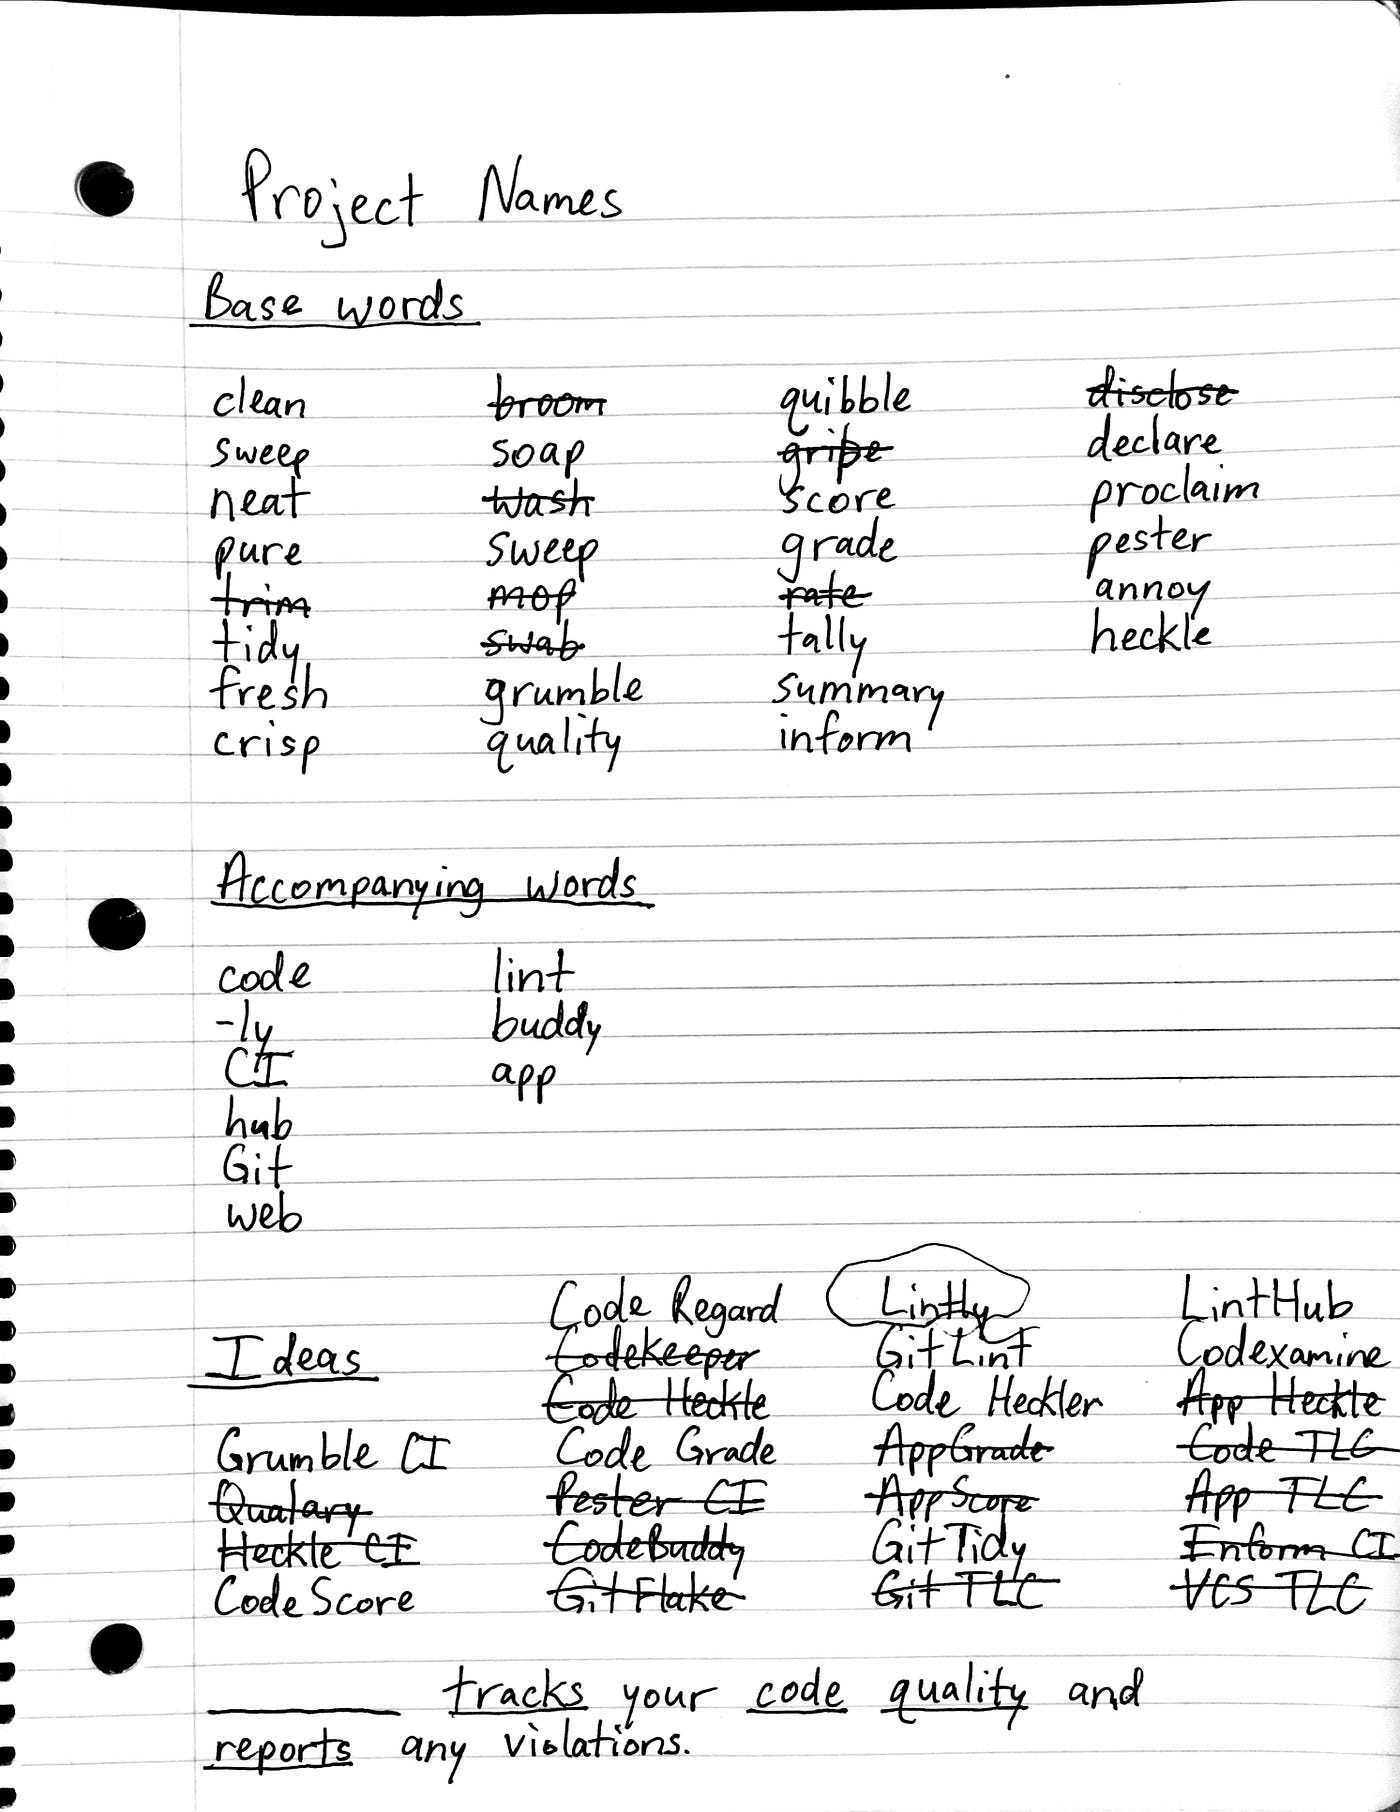 Project Names
Base words
clean broom quibble disclose
sweep soap gripe declare
neat wash score proclaim
pure sweep grade pester
trim mop rate annoy
tidy swab tally heckle
fresh grumble summary
crisp quality inform
Accompanying words
code lint
-ly buddy
CI app
hub
Git
web
Code Regard Lintly LintHub
Ideas Codekeeper GitLint Codexamine
Code Heckle Code Heckler App Heckle
Grumble CI Code Grade AppGrade Code TLC
Qualary Pester CI AppScore App TLC
Heckle CI CodeBuddy GitTidy Inform CI
CodeScore GitFlake Git TLC VCS TLC
________ tracks your code quality and
reports any violations.